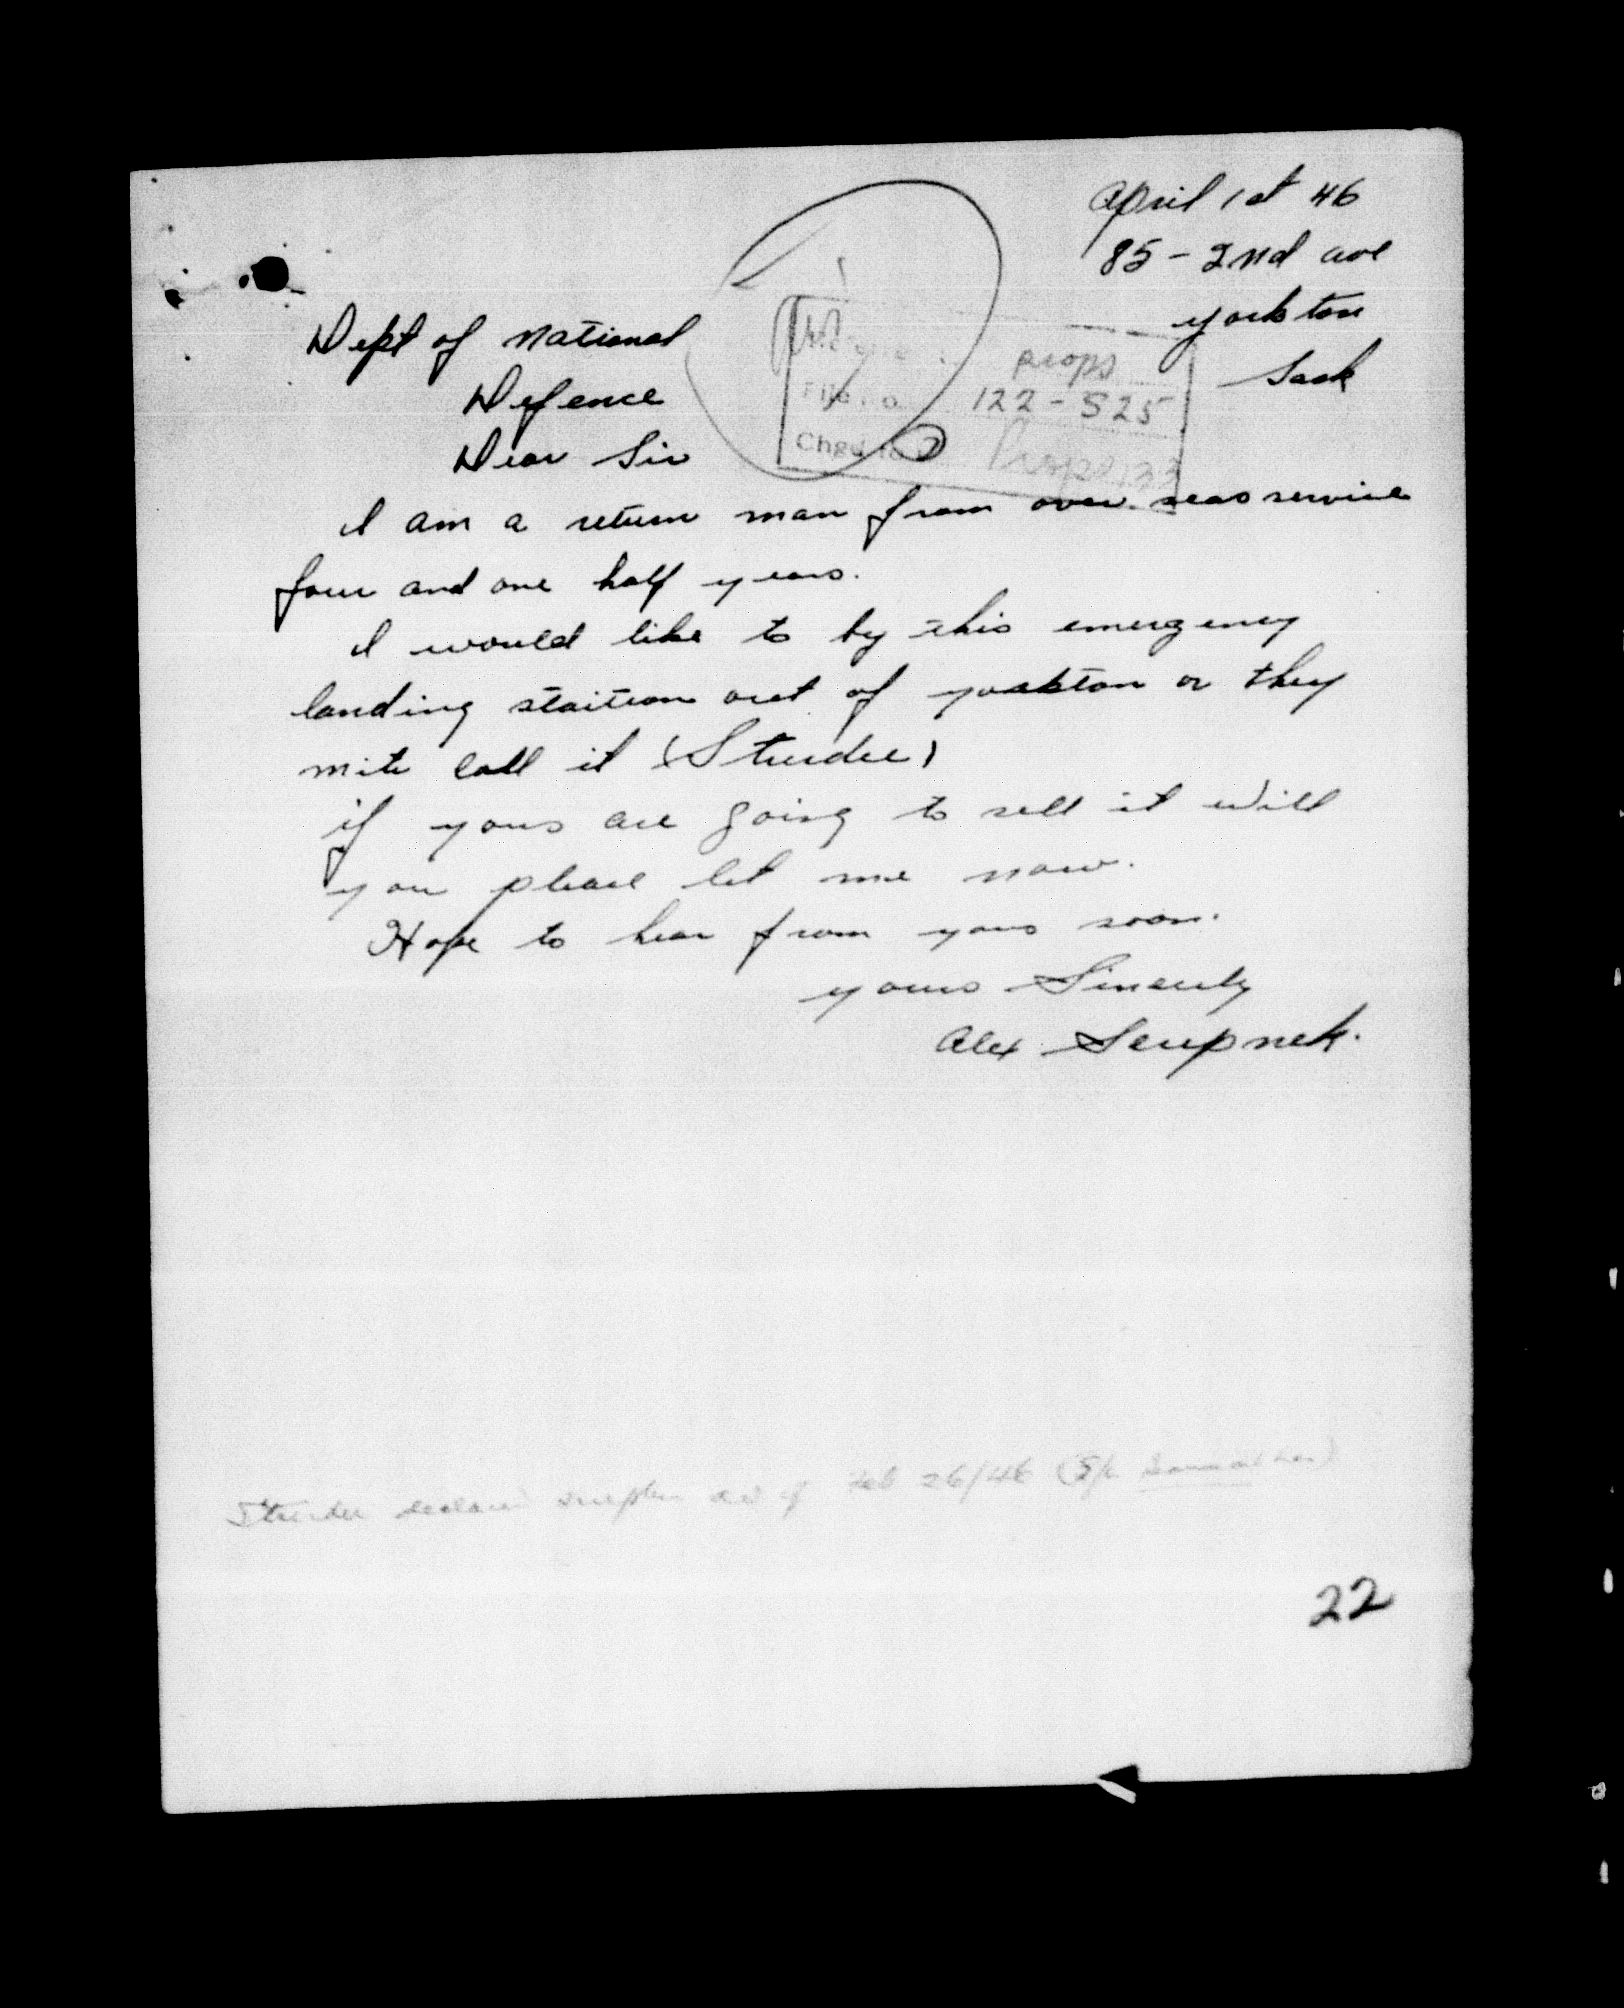 April 1st 46
85 - 2nd ave
yorkton
Sask
Dept of national
Defence
Dear Sir
props
File No. 122-525
Chgd to Props 33
I am a return man from over seas service
four and one half years.
I would like to by this emergency
landing staition out of yorkton or they
mite call it (Sturdee)
if yous are going to sell it will
you please let me now.
Hope to hear from yous soon.
yours Sincerly
Alex Scupnek.
Sturdee declared surplus as of Feb 26/46
22